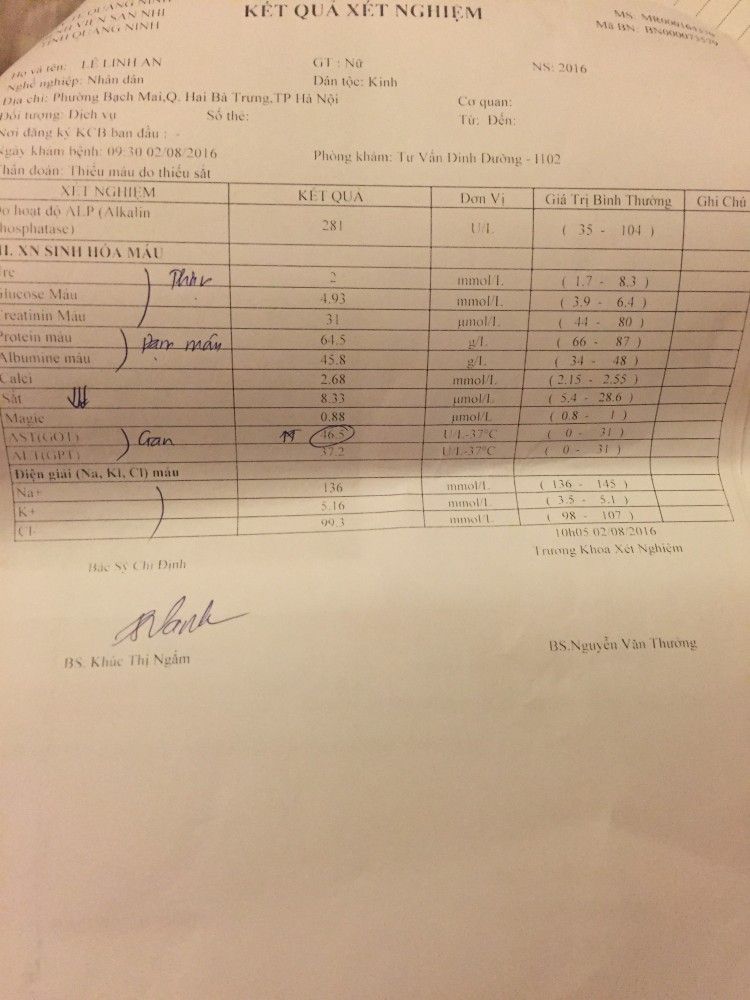 KẾT QUẢ XÉT NGHIỆM
VIỆN SẢN NHI
TỈNH QUẢNG NINH
Mã BN:
Họ và tên: LÊ LINH AN GT : Nữ NS: 2016
Nghề nghiệp: Nhân dân Dân tộc: Kinh
Địa chỉ: Phường Bạch Mai,Q. Hai Bà Trưng,TP Hà Nội Cơ quan:
Đối tượng: Dịch vụ Số thẻ: Từ: Đến:
Nơi đăng ký KCB ban đầu : -
Ngày khám bệnh: 09:30 02/08/2016 Phòng khám: Tư Vấn Dinh Dưỡng - H02
đoán: Thiếu máu do thiếu sắt
XÉT NGHIỆM KẾT QUẢ Đơn Vị Giá Trị Bình Thường Ghi Chú
Đo hoạt độ ALP (Alkalin
phosphatase) 281 U/L ( 35 - 104 )
XN SINH HÓA MÁU
Ure 2 mmol/L ( 1.7 - 8.3 )
Thận
Glucose Máu 4.93 mmol/L ( 3.9 - 6.4 )
Creatinin Máu 31 µmol/L ( 44 - 80 )
Protein máu 64.5 g/L ( 66 - 87 )
Đạm máu
Albumine máu 45.8 g/L ( 34 - 48 )
Calci 2.68 mmol/L ( 2.15 - 2.55 )
Sắt ↓↓ 8.33 µmol/L ( 5.4 - 28.6 )
Magie 0.88 µmol/L ( 0.8 - 1 )
AST(GOT) Gan ↑↑ 46.5 U/L-37°C ( 0 - 31 )
ALT(GPT) 37.2 U/L-37°C ( 0 - 31 )
Điện giải (Na, Ki, Cl) máu
Na+ 136 mmol/L ( 136 - 145 )
K+ 5.16 mmol/L ( 3.5 - 5.1 )
Cl- 99.3 mmol/L ( 98 - 107 )
10h05 02/08/2016
Bác Sỹ Chỉ Định Trưởng Khoa Xét Nghiệm
BS. Khúc Thị Ngắm BS.Nguyễn Văn Thường